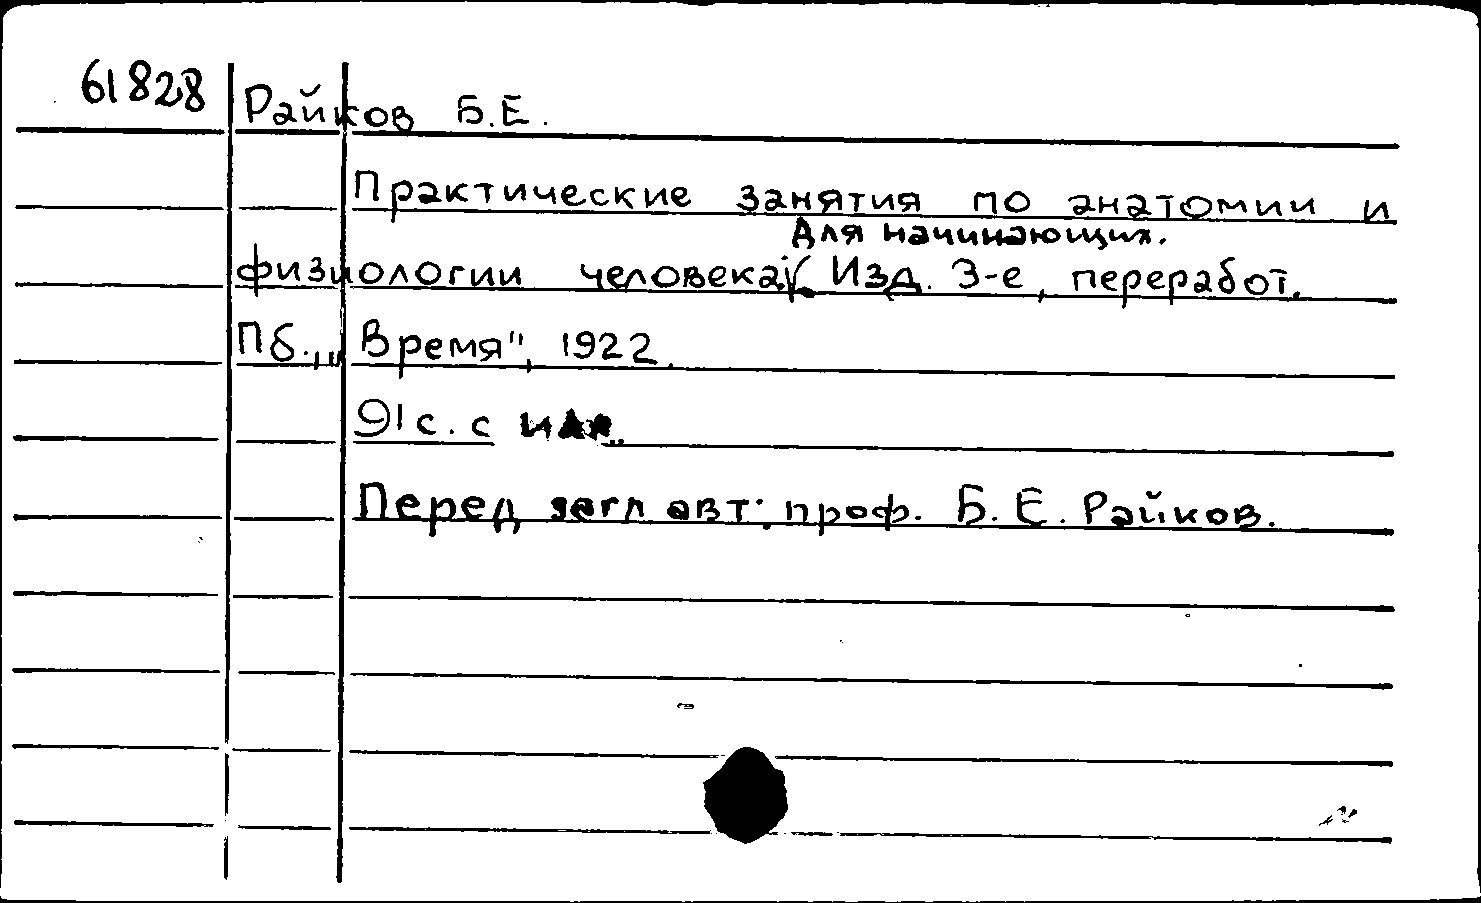 61828
Райков Б.Е.
Практические занятия по анатомии и
Для начинающих.
физиологии человека. Изд. 3-е, переработ.
Пб., „Время", 1922.
91 с. с илл.
Перед загл авт: проф. Б. Е. Райков.